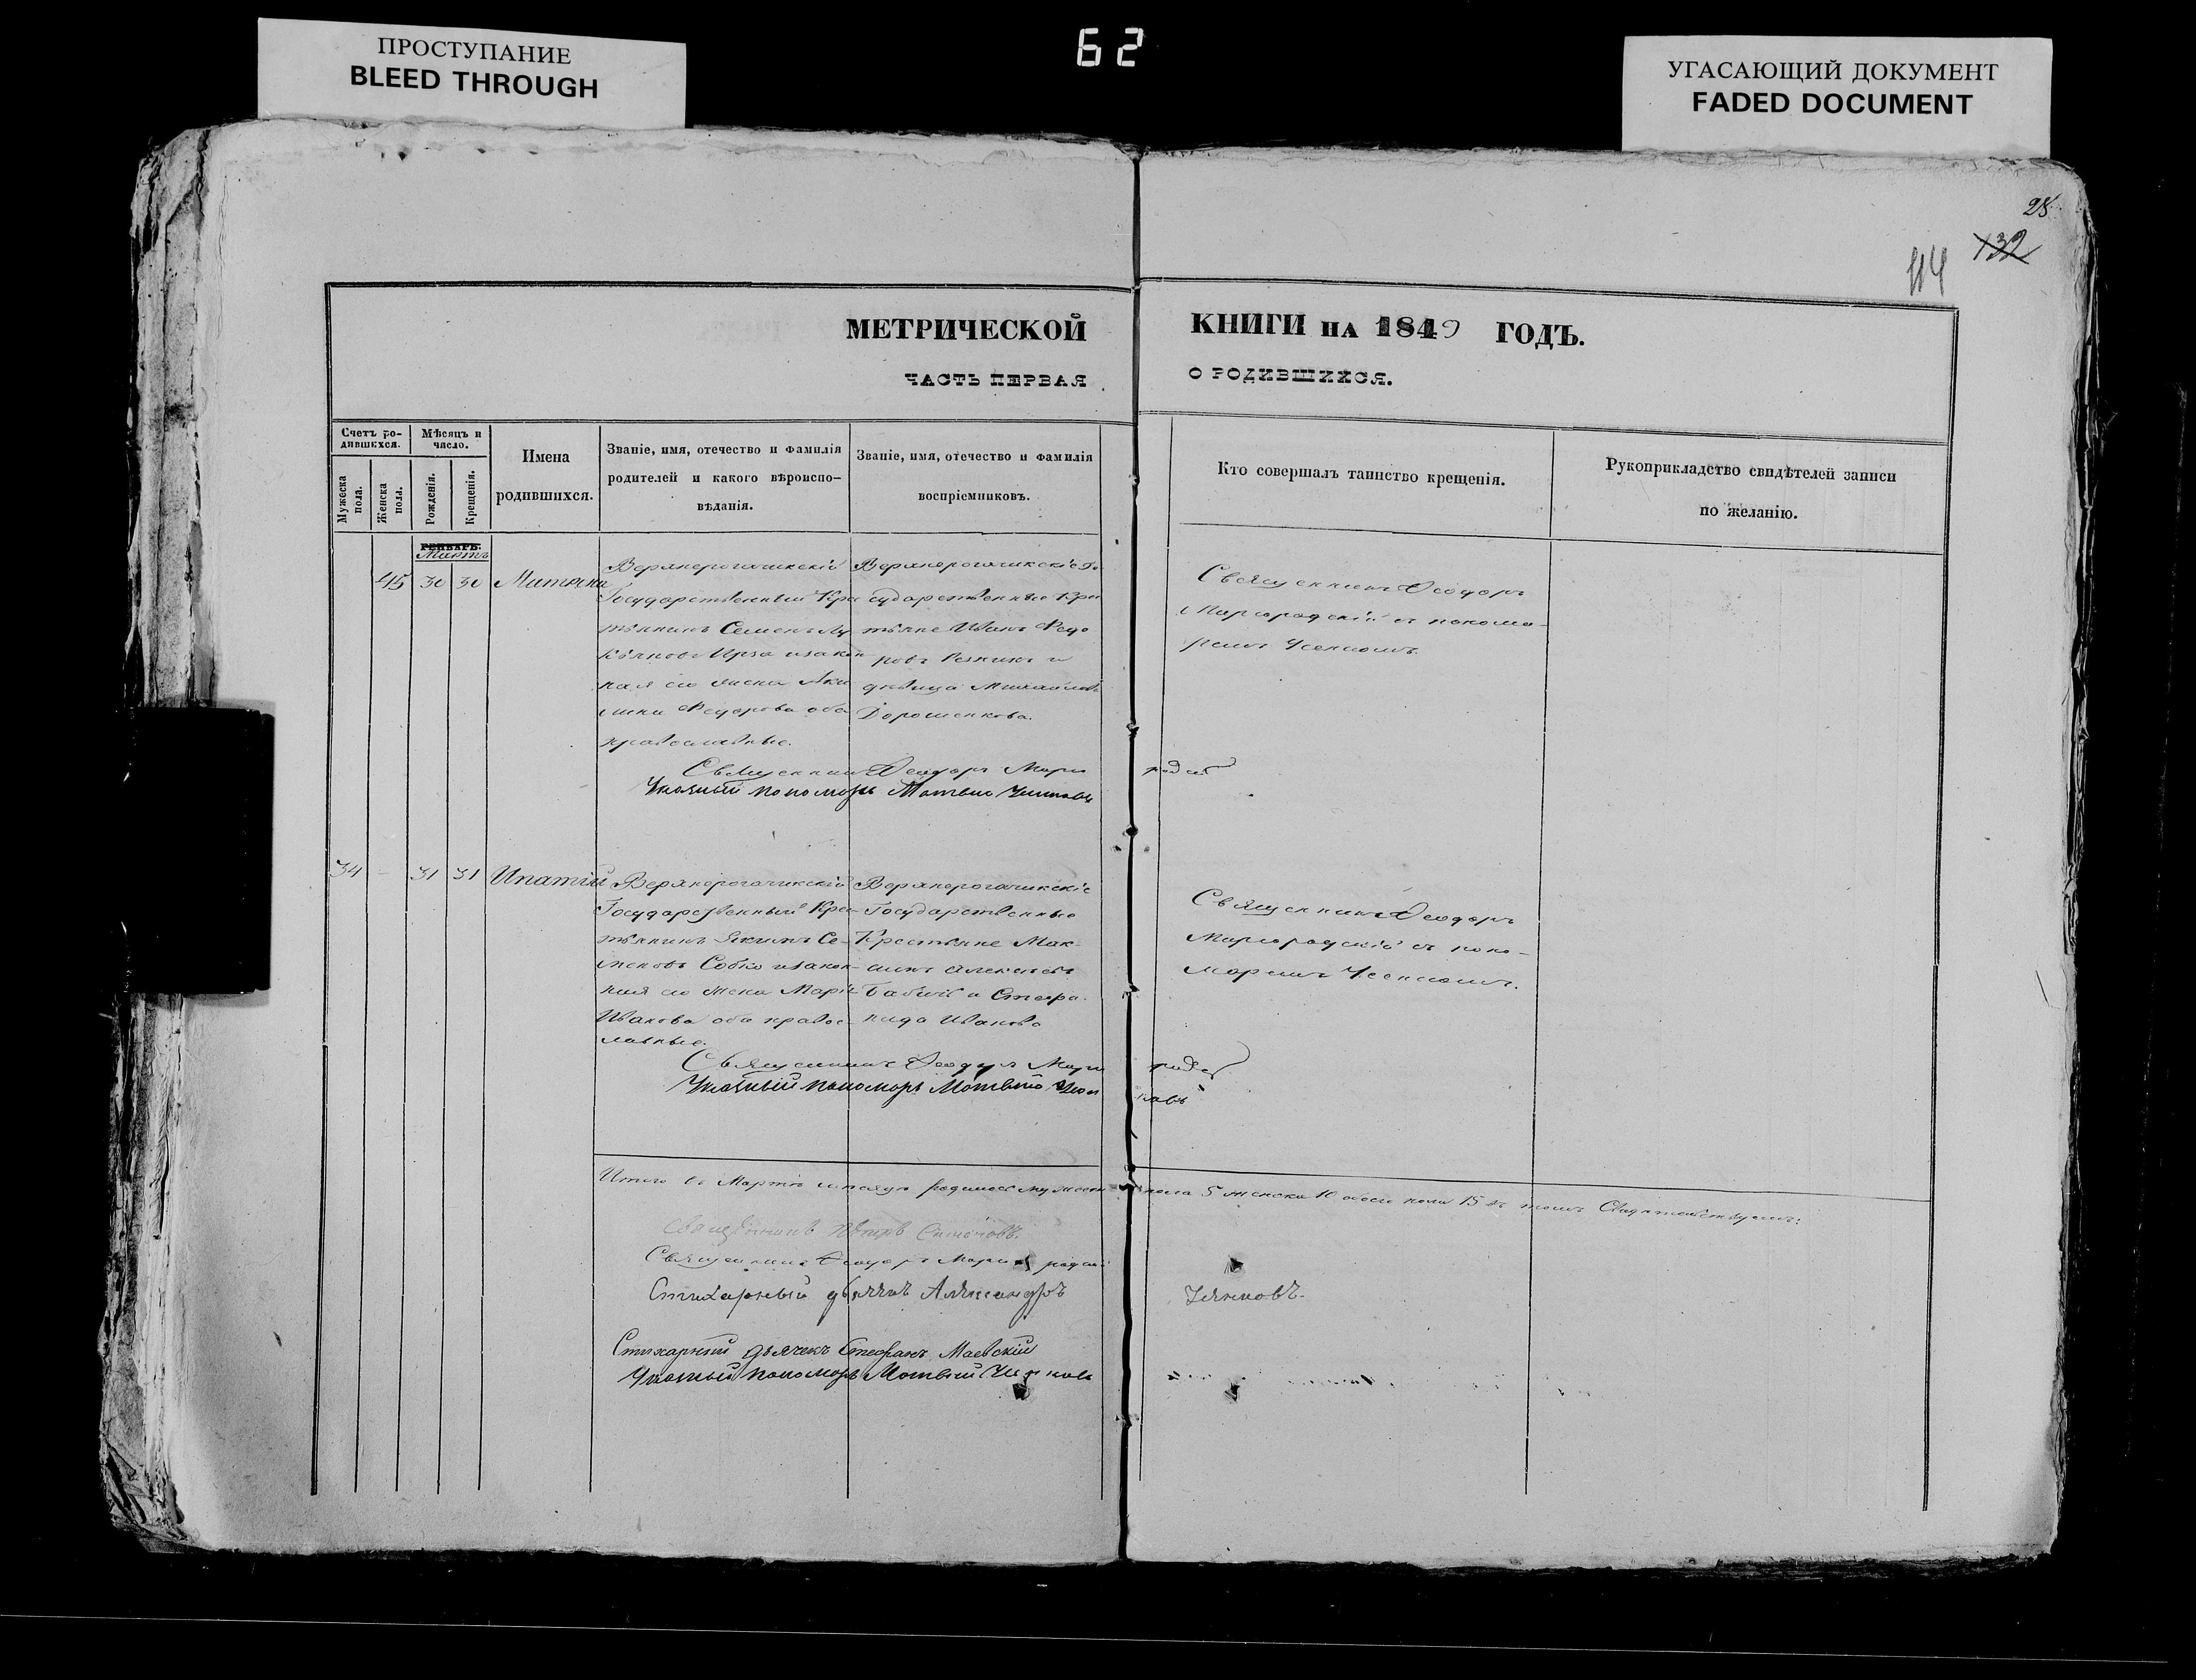 ПРОСТУПАНИЕ
BLEED THROUGH
62
УГАСАЮЩИЙ ДОКУМЕНТ
FADED DOCUMENT
28
132
МЕТРИЧЕСКОЙ КНИГИ НА 1849 ГОДЪ.
ЧАСТЬ ПЕРВАЯ О РОДИВШИХСЯ.
Счетъ ро-
дившихся.
Мужеска
пола.
Женска
пола.
Мѣсяцъ и
число.
Рожденія.
Крещенія.
Имена
родившихся.
Званіе, имя, отечество и фамилія
родителей и какого вѣроиспо-
вѣданія.
Званіе, имя, отечество и фамилія
воспріемниковъ.
Кто совершалъ таинство крещенія.
Рукоприкладство свидѣтелей записи
по желанію.
Мартъ
45 30 30
Верхнерогачикскій
Государственный Кре
стьянинъ Семенъ
ная его жена Аки
лина Федорова оба
православные.
Верхнерогачикскіе Го
сударственные Кре
стьяне Иванъ Федо
ровъ Резникъ и
дѣвица Михайлова
Дорошенкова.
Священникъ Феодоръ
Маргорадскій съ понома
ремъ
Священник Феодоръ Марго радск
Указный пономарь Матвей
34 - 31 31 Ипатій
Верхнерогачикскій
Государственный Кре-
стьянинъ Якимъ Се-
меновъ Собко и закон-
ная его жена Марія
Иванова оба правос-
лавные.
Верхнерогачикскіе
Государственные
Крестьяне Мак-
симъ Алексѣевъ
Бабичъ и Степа
нида Иванова
Священникъ Феодоръ
Маргорадскій съ поно-
маремъ
Священникъ Феодоръ Марго радск
Указный пономарь Матвей
Итого въ Мартѣ мѣсяцѣ родилось мужеска пола 5 женска 10 обоего пола 15 въ томъ Свидѣтельствуемъ:
Священникъ Петръ Симоновъ.
Священникъ Феодоръ Марго радск
Стихарный дьячекъ Александръ
Стихарный дьячекъ Стефанъ Маевскій
Указный пономарь Матвей